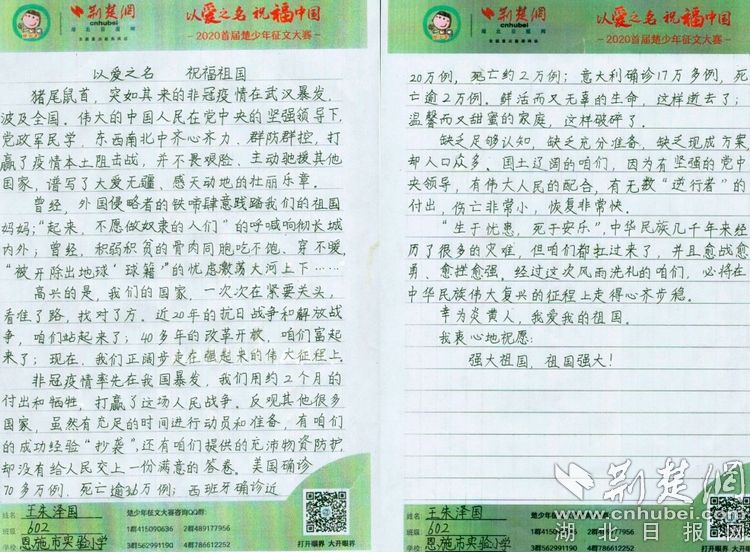 荆楚网
cnhubei
湖北日报网
以爱之名 祝福中国
-2020首届楚少年征文大赛-
以爱之名 祝福祖国
猪尾鼠首，突如其来的非冠疫情在武汉暴发，
波及全国。伟大的中国人民在党中央的坚强领导下，
党政军民学，东西南北中齐心齐力、群防群控，打
赢了疫情本土阻击战，并不畏艰险、主动驰援其他
国家，谱写了大爱无疆、感天动地的壮丽乐章。
曾经，外国侵略者的铁啼肆意残踏我们的祖国
妈妈；“起来，不愿做奴隶的人们”的呼喊响彻长城
内外；曾经，积弱积贫的骨肉同胞吃不饱、穿不暖，
“被开除出地球‘球籍’”的忧虑激荡大河上下……
高兴的是，我们的国家，一次次在紧要关头，
看准了路，找对了方。近20年的抗日战争和解放战
争，咱们站起来了；40多年的改革开放，咱们富起
来了；现在，我们正阔步走在强起来的伟大征程上。
非冠疫情率先在我国暴发，我们用约2个月的
付出和牺牲，打赢了这场人民战争。反观其他很多
国家，虽然有充足的时间进行动员和准备，有咱们
的成功经验“抄袭”，还有咱们提供的充沛物资防护，
却没有给人民交上一份满意的答卷。美国确诊
70多万例，死亡逾36万例；西班牙确诊近
姓名: 王朱泽国
班级: 602
学校: 恩施市实验小学
楚少年征文大赛咨询QQ群:
1群415090636 2群489177956
3群562991190 4群786612252
打开眼界 大开眼界
荆楚网
cnhubei
湖北日报网
以爱之名 祝福中国
-2020首届楚少年征文大赛-
20万例，死亡约2万例；意大利确诊17万多例，死
亡逾2万例。鲜活而又无辜的生命，这样逝去了；
温馨而又甜蜜的家庭，这样破碎了。
缺乏足够认知，缺乏充分准备，缺乏现成方案，
却人口众多、国土辽阔的咱们，因为有坚强的党中
央领导，有伟大人民的配合，有无数“逆行者”的
付出，伤亡非常小，恢复非常快。
“生于忧患，死于安乐”，中华民族几千年来经
历了很多的灾难，但咱们都扛过来了，并且愈战愈
勇、愈挫愈强。经过这次风雨洗礼的咱们，必将在
中华民族伟大复兴的征程上走得心齐步稳。
幸为炎黄人，我爱我的祖国。
我衷心地祝愿：
强大祖国，祖国强大！
姓名: 王朱泽国
班级: 602
学校: 恩施市实验小学
楚少年征文大赛咨询QQ群:
1群415090636 2群489177956
3群562991190 4群786612252
荆楚网
www.cnhubei.com
湖北日报网